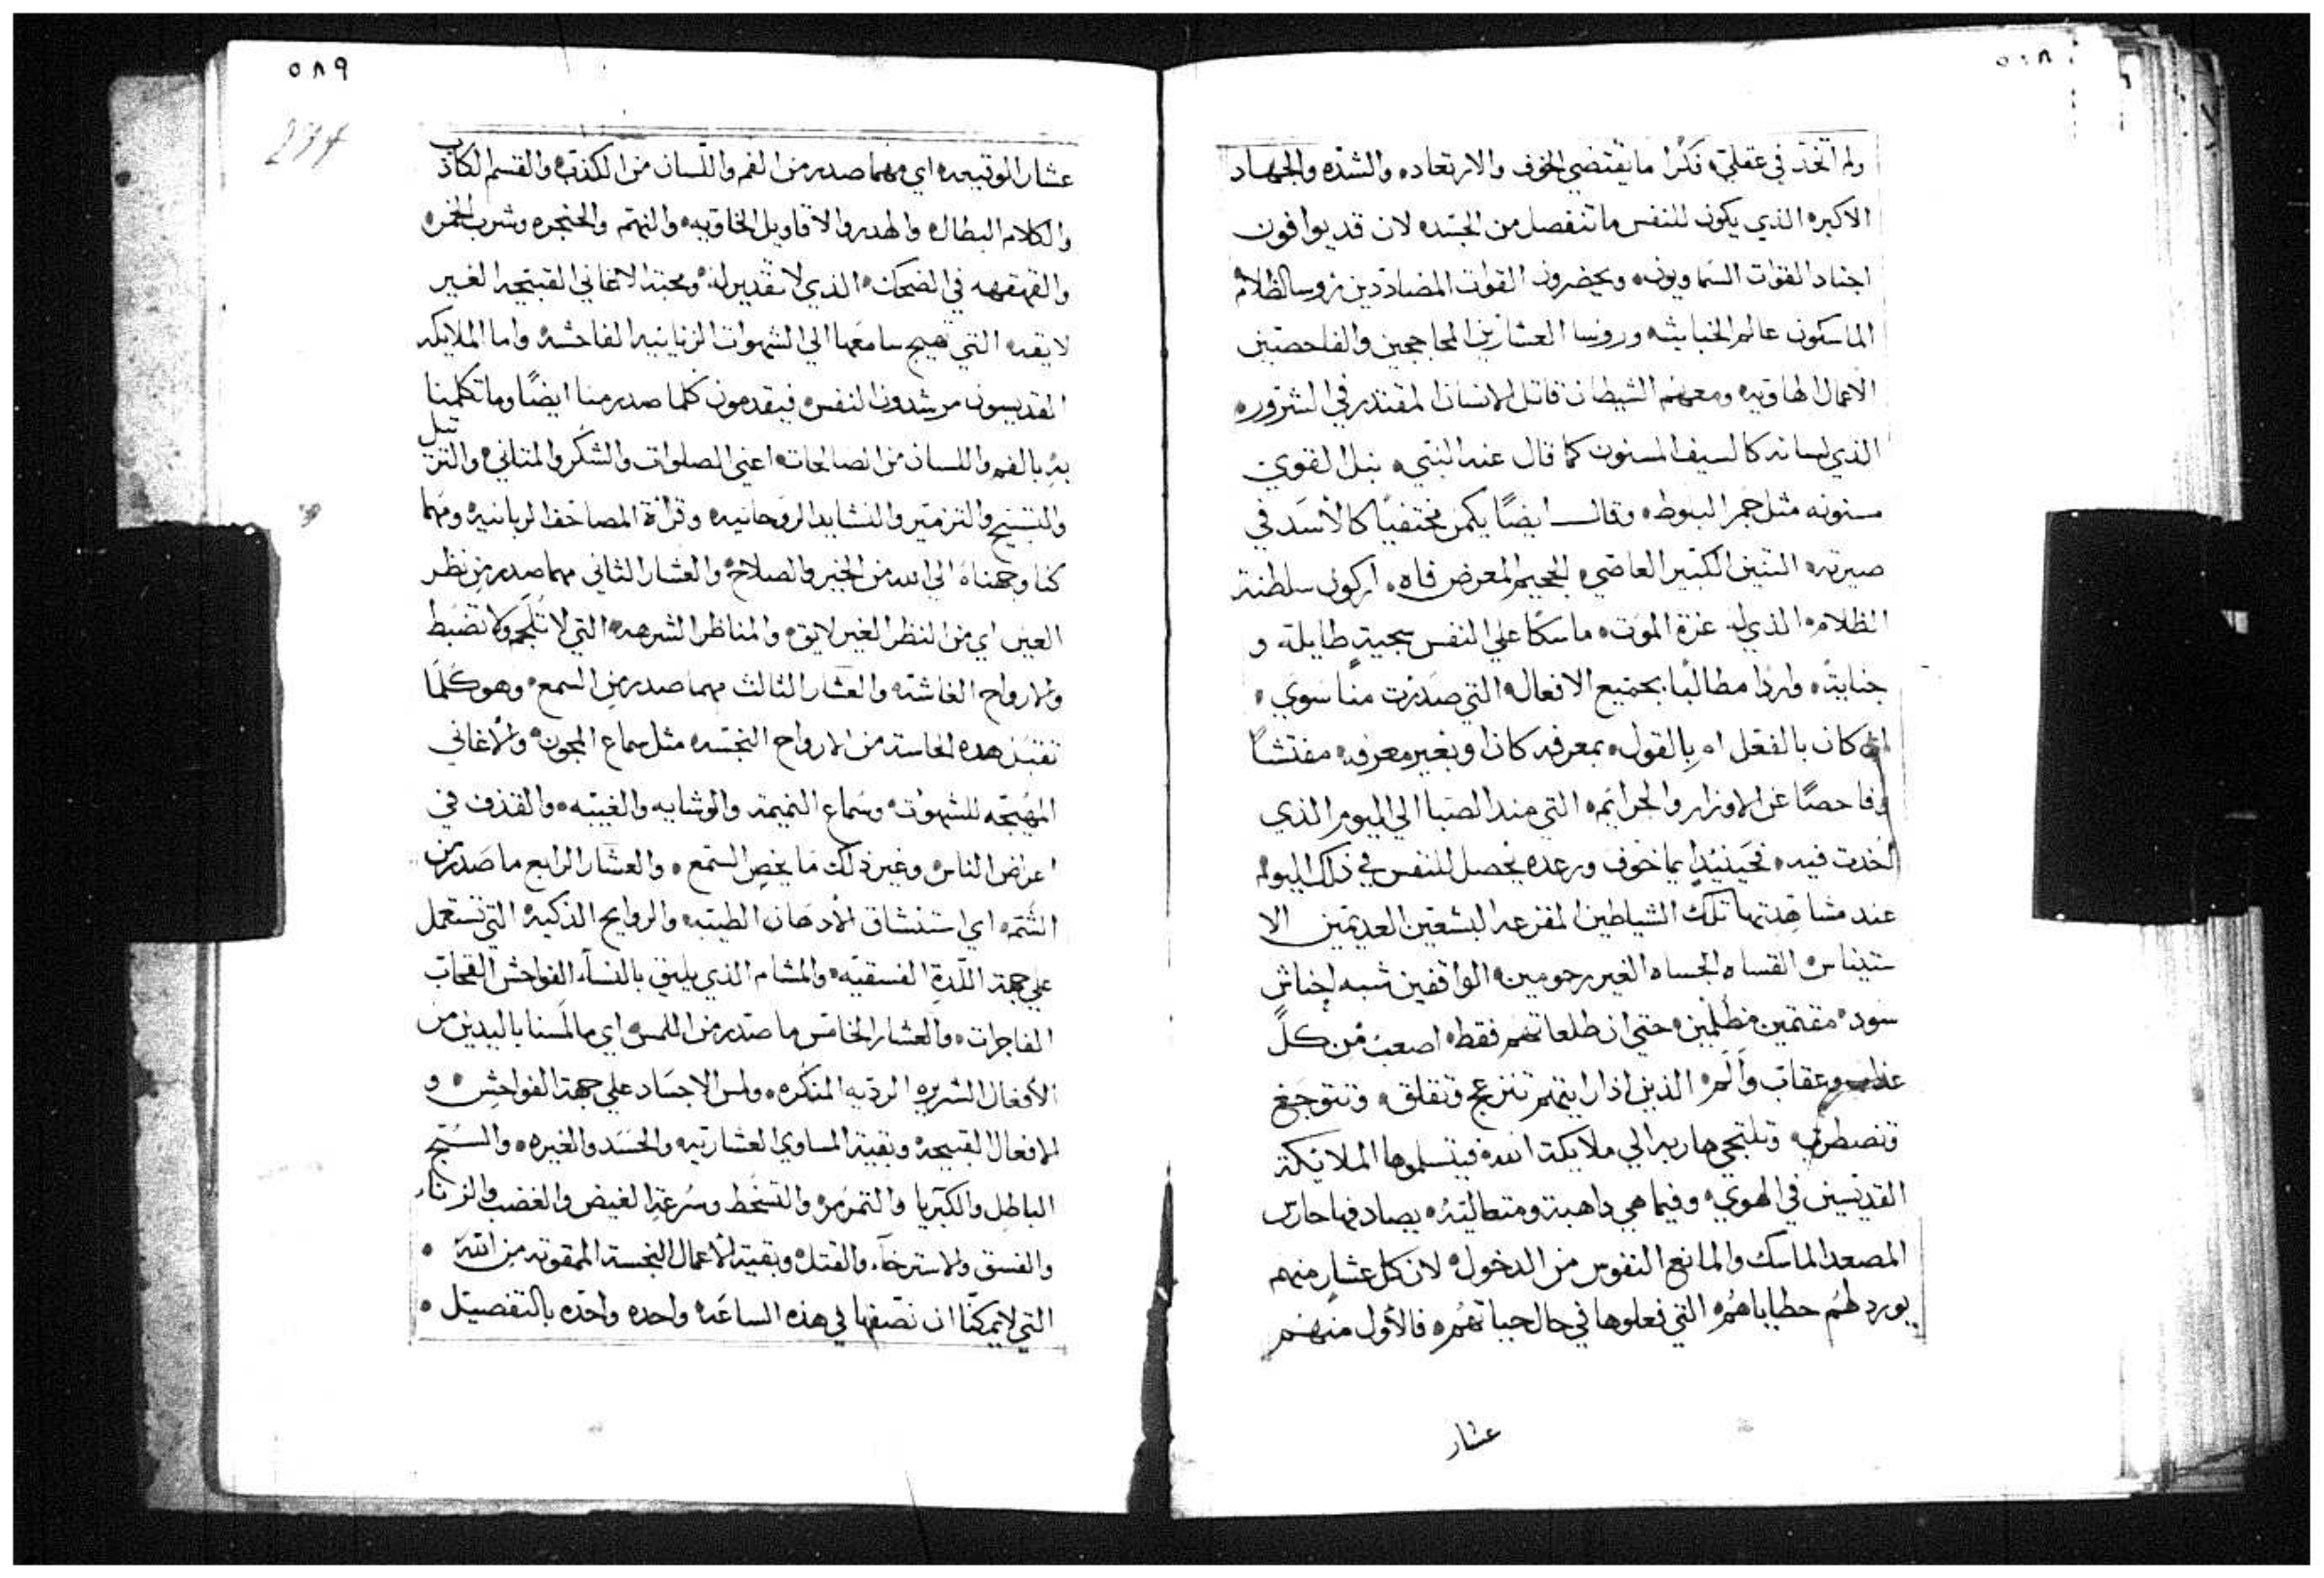 ٥٨٨
ولم اتخذ في عقلي فكرا ما يقتضي الخوف والارتعاده والشده والجهاد
الاكبره الذي يكون للنفس ما تنفصل من الجسده لان قد يوافون
اجناد القوات السماويون ويحضرون القوات المضاددين روسا الظلام
الماسكون عالم الخباثه وروسا العشارين المحاججين والفاحصين
الاعمال الهاويه ومعهم الشيطان قاتل الانسان المقتدر في الشروره
الذي لسانه كالسيف المسنون كما قال عنه النبي نبل القوي
مسنونه مثل جمر البلوط وقال ايضًا يكمن مختفيًا كالأسد في
صيرته التنين الكبير العاصي الجحيم المعرض فاه اركون سلطنة
الظلام الذي له عزة الموت ماسكًا علي النفس بحجية طايلة و
جنايية واردًا مطالبًا بجميع الافعال التي صدرت منا سوي
ان كان بالفعل ام بالقول بمعرفه كان او بغير معرفه مفتشًا
وفاحصًا عن الاوزار والجرايم التي منذ الصبا الي اليوم الذي
اخذت فيه فحينيذٍ يما خوف ورعده تحصل للنفس في ذلك اليوم
عند مشاهدتها تلك الشياطين المفزعه البشعين العديمين الا
ستيناس القساه الجساه الغير رحومين الواقفين شبه احناش
سود مقتمين مظلمين حتي ان طلعاتهم فقط اصعب من كل
عذاب وعقاب وألم الذين اذا رايتهم تنزعج وتقلق وتتوجع
وتضطرب وتلتجي هاربه الي ملايكة الله فيتسلموها الملايكة
القديسين في الهوي وفيما هي ذاهبة ومتعاليه يصادفها حارس
المصعد الماسك والمانع النفوس من الدخول لان كل عشار منهم
يورد لهم خطاياهم التي فعلوها في حال حياتهم فالأول منهم
عشار
٥٨٩
234
عشار الوقيعه اي مهما صدر من الفم واللسان من الكذب والقسم الكاذب
والكلام البطال والهدر والاقاويل الخاويه والنهم والحنجره وشرب الخمر
والقهقهه في الضحك الذي لا تقدير له ومحبة الاغاني القبيحه الغير
لايقه التي تهيج سامعها الي الشهوات الزنايه الفاحشه واما الملايكه
القديسون مرشدون النفس فيقدمون كلما صدر منا ايضًا وما تكلمنا
به بالفم واللسان من الصالحات اعني الصلوات والشكر والمتاني والترتيل
والتسبيح والتزمير والنشايد الروحانيه وقراة المصاحف الربانيه ومهما
كنا وجهناه الي الله من الخير والصلاح والعشار الثاني مهما صدر من نظر
العين اي من النظر الغير لايق والمناظر الشرهه التي لا تلجم ولا تضبط
والارواح الغاشه والعشار الثالث مهما صدر من السمع وهو كلما
تقتبل هذه الحاسة من الارواح النجسه مثل سماع المجون والأغاني
المهيجه للشهوات وسماع النميمة والوشايه والغيبه والقذف في
اعراض الناس وغير ذلك مما يخص السمع والعشار الرابع ما صدر من
الشم اي استنشاق الأدهان الطيبه والروايح الذكيه التي تستعمل
علي جهة اللذة الفسقيه والمشام الذي يليق بالنسآء الفواحش القحاب
الفاجرات والعشار الخامس ما صدر من اللمس اي ما لمسنا باليدين من
الأفعال الشريره الرديه المنكره ولمس الاجساد علي جهة الفواحش و
الافعال القبيحه وبقية المساوي العشاريه والحسد والغيره والسبح
الباطل والكبريا والتمرمر والتسخط وسرعة الغيض والغضب والزناء
والفسق والاسترخآء والقتل وبقية الأعمال النجسة الممقوته من الله
التي لا يمكنّا ان نصفها في هذه الساعه واحده واحده بالتفصيل